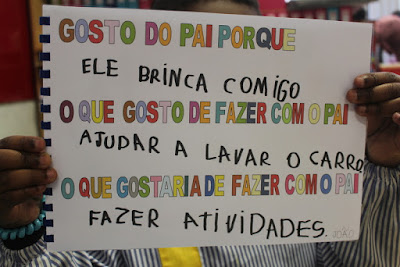 GOSTO DO PAI PORQUE
ELE BRINCA COMIGO
O QUE GOSTO DE FAZER COM O PAI
AJUDAR A LAVAR O CARRO
O QUE GOSTARIA DE FAZER COM O PAI
FAZER ATIVIDADES.